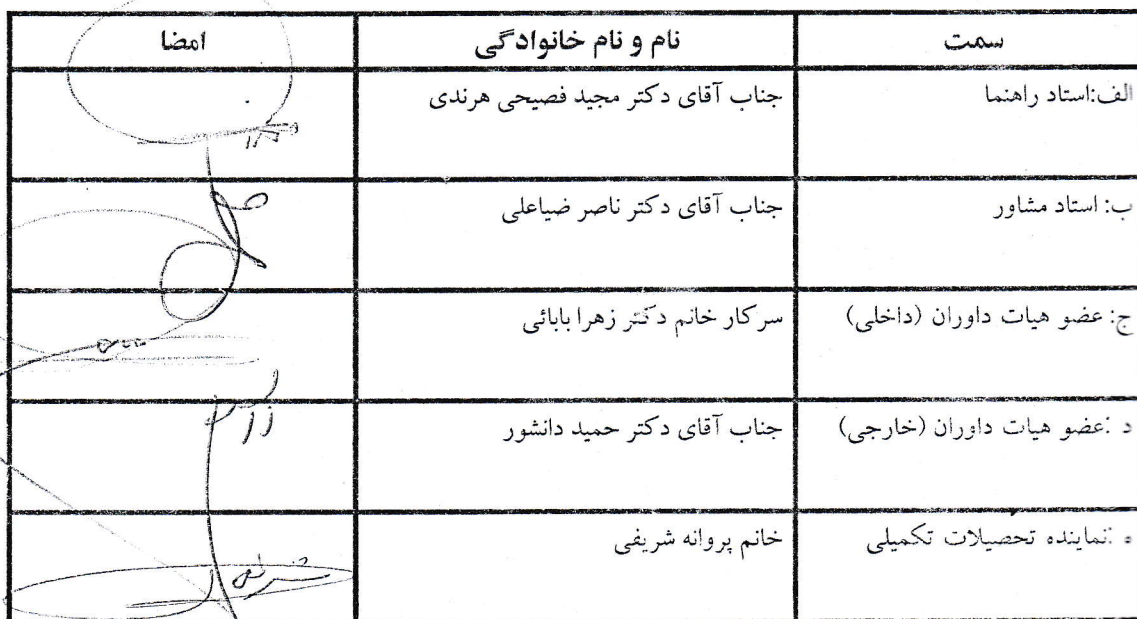 سمت نام و نام خانوادگی امضا
الف:استاد راهنما جناب آقای دکتر مجید فصیحی هرندی
ب: استاد مشاور جناب آقای دکتر ناصر ضیاعلی
ج: عضو هیات داوران (داخلی) سرکار خانم دکتر زهرا بابائی
د :عضو هیات داوران (خارجی) جناب آقای دکتر حمید دانشور
ه :نماینده تحصیلات تکمیلی خانم پروانه شریفی